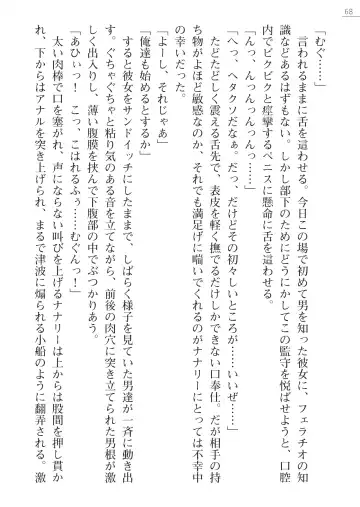 68
「むぐ……」
言われるままに舌を這わせる。今日この場で初めて男を知った彼女に、フェラチオの知
識などあるはずもない。しかし部下のためにどうにかしてこの監守を悦ばせようと、口腔
内でビクビクと痙攣するペニスに懸命に舌を這わせる。
「んっ、んっんっんっんっ……」
「へっ、ヘタクソだなぁ。だっ、だけどその初々しいところが……いいぜ……」
たどたどしく震える舌先で、表皮を軽く撫でるだけしかできない口奉仕。だが相手の持
ち物がよほど敏感なのか、それでも満足げに喘いでくれるのがナナリーにとっては不幸中
の幸いだった。
「よーし、それじゃあ」
「俺達も始めるとするか」
すると彼女をサンドイッチにしたまま、しばらく様子を見ていた男達が一斉に動き出
す。ぐちゃぐちゃと粘り気のある音を立てながら、前後の肉穴に突き立てられた男根が激
しく出入りし、薄い腹膜を挟んで下腹部の中でぶつかりあう。
「あひぃっ！　こっ、こはれるふぅ……むぐんっ！」
太い肉棒で口を塞がれ、声にならない叫びを上げるナナリーは上からは股間を押し貫か
れ、下からはアナルを突き上げられ、まるで津波に煽られる小船のように翻弄される。激